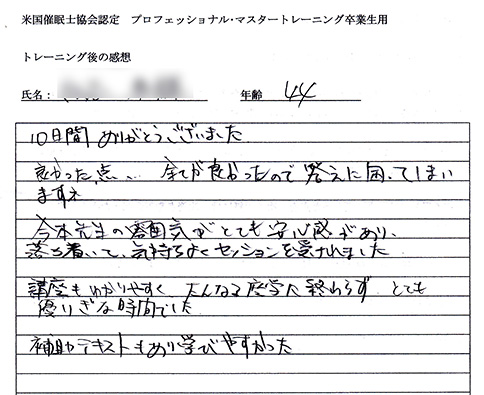 米国催眠士協会認定　プロフェッショナル・マスタートレーニング卒業生用
トレーニング後の感想
氏名：
年齢 44
10日間 ありがとうございました
良かった点、、全てが良かったので 答えに困ってしまい
ますネ
今本先生の雰囲気がとても安心感があり、
落ち着いて、気持ちよくセッションを受けれました
講座もわかりやすく、たんなる座学に終わらず とても
有りすぎな時間でした
補助テキストもあり学びやすかった